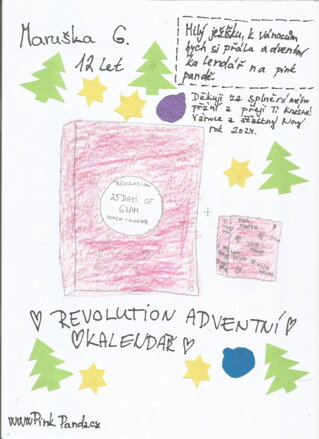 Maruška G.
12 let
Milý ježíšku, k vánocům
bych si přála adventní
kalendář na pink
pandě.
Děkuji za splnění mého
přání a přeji Ti krásné
Vánoce a šťastný Nový
rok 2024.
REVOLUTION
25 DAYS OF
GLAM
ADVENT CALENDAR
+
PINK
PANDA
REVOLUTION ADVENTNÍ
KALENDÁŘ
www.PinkPanda.cz